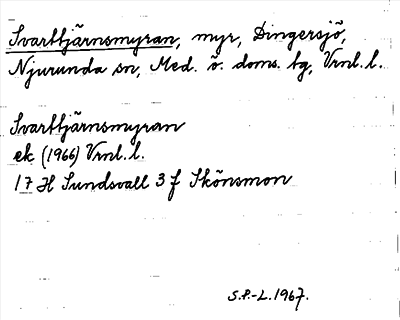 Svarttjärnsmyran, myr, Dingersjö,
Njurunda sn, Med. ö. doms. tg, Vrnl. l.
Svarttjärnsmyran
ek (1966) Vrnl. l.
17 H Sundsvall 3 f Skönsmon
S.P.-L. 1967.